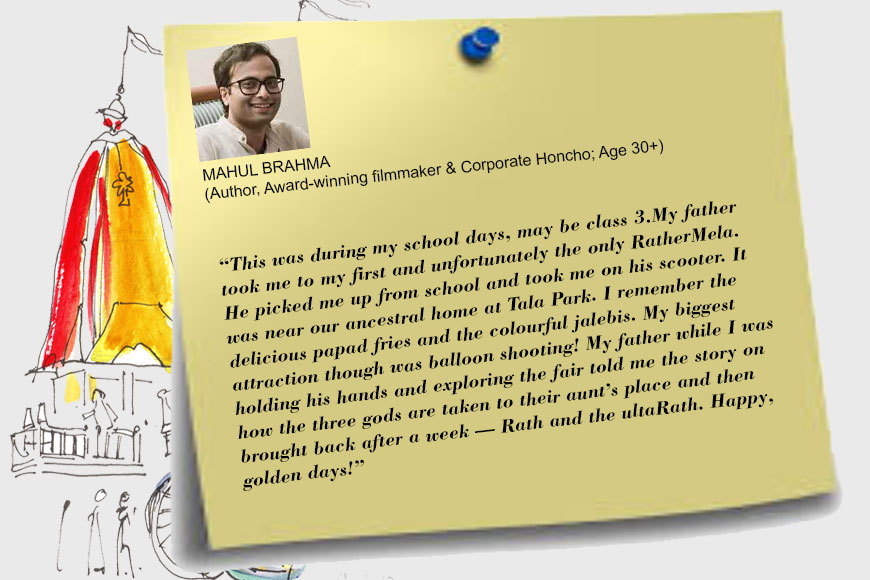 MAHUL BRAHMA
(Author, Award-winning filmmaker & Corporate Honcho; Age 30+)
“This was during my school days, may be class 3.My father
took me to my first and unfortunately the only RatherMela.
He picked me up from school and took me on his scooter. It
was near our ancestral home at Tala Park. I remember the
delicious papad fries and the colourful jalebis. My biggest
attraction though was balloon shooting! My father while I was
holding his hands and exploring the fair told me the story on
how the three gods are taken to their aunt’s place and then
brought back after a week — Rath and the ultaRath. Happy,
golden days!”